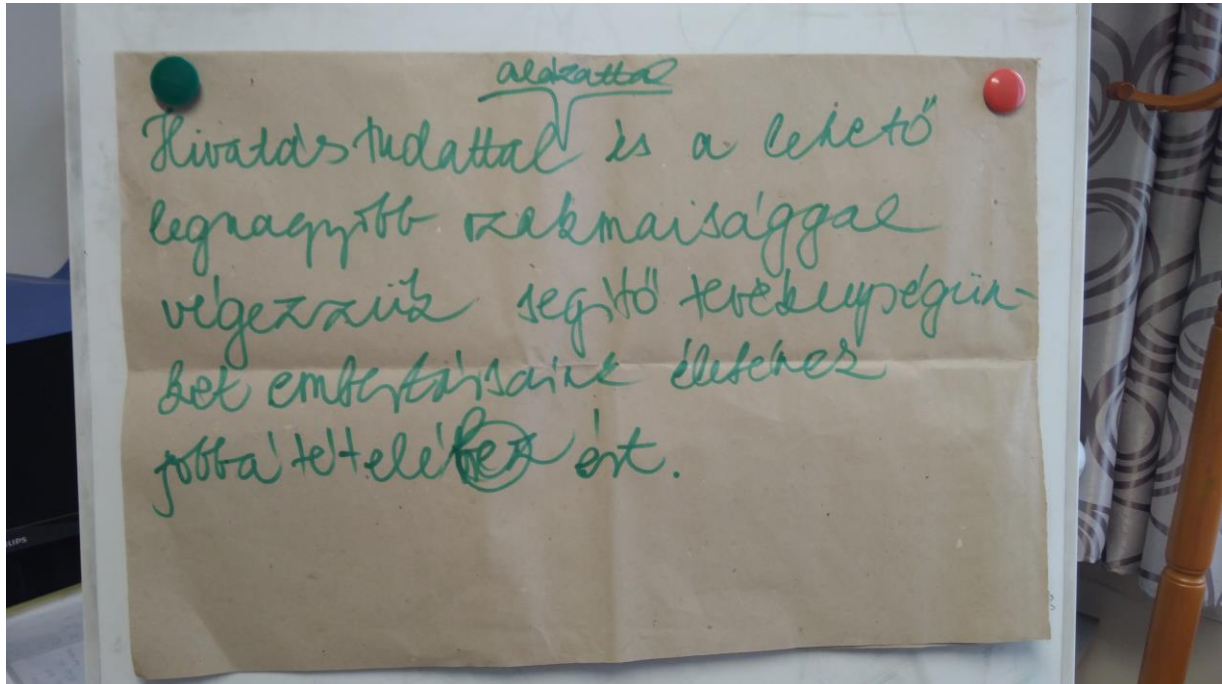 alázattal
Hivatástudattal és a lehető
legnagyobb szakmaisággal
végezzük segítő tevékenységün-
ket embertársaink életének
jobbá tételé ért.
PHILIPS